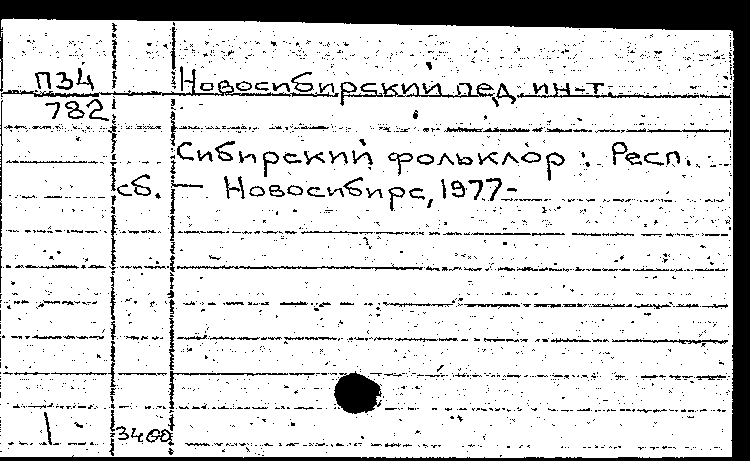 П34 Новосибирский пед. ин-т.
782
Сибирский фольклор : Респ.
сб. — Новосибирс, 1977-
1 3400